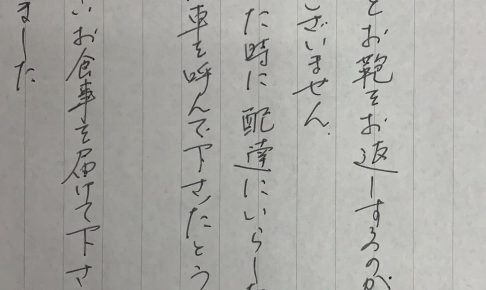 とお鞄をお返しするのが
ございません。
た時に配達にいらした
車を呼んで下さったとう
いお食事を届けて下さ
ました